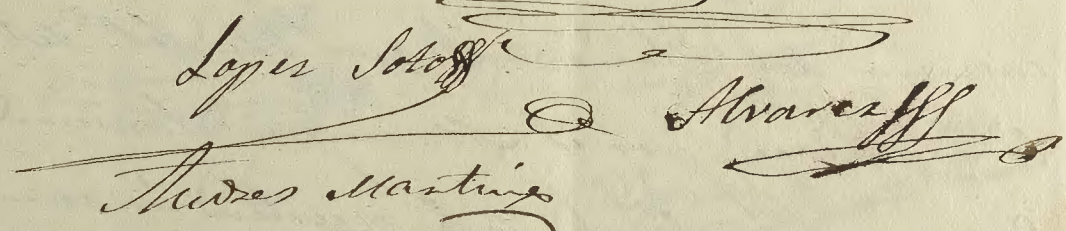 Lopez Soto
Alvarez
Andres Martinez